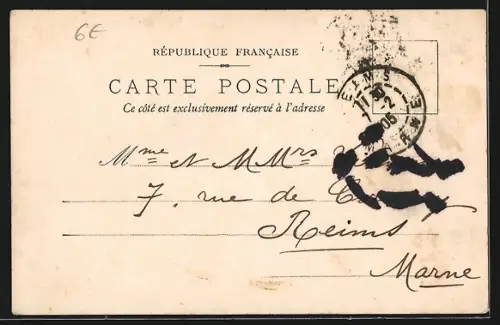 6€
RÉPUBLIQUE FRANÇAISE
CARTE POSTALE
Ce côté est exclusivement réservé à l'adresse
REIMS
MARNE
Mme et MMrs
7, rue de
Reims
Marne